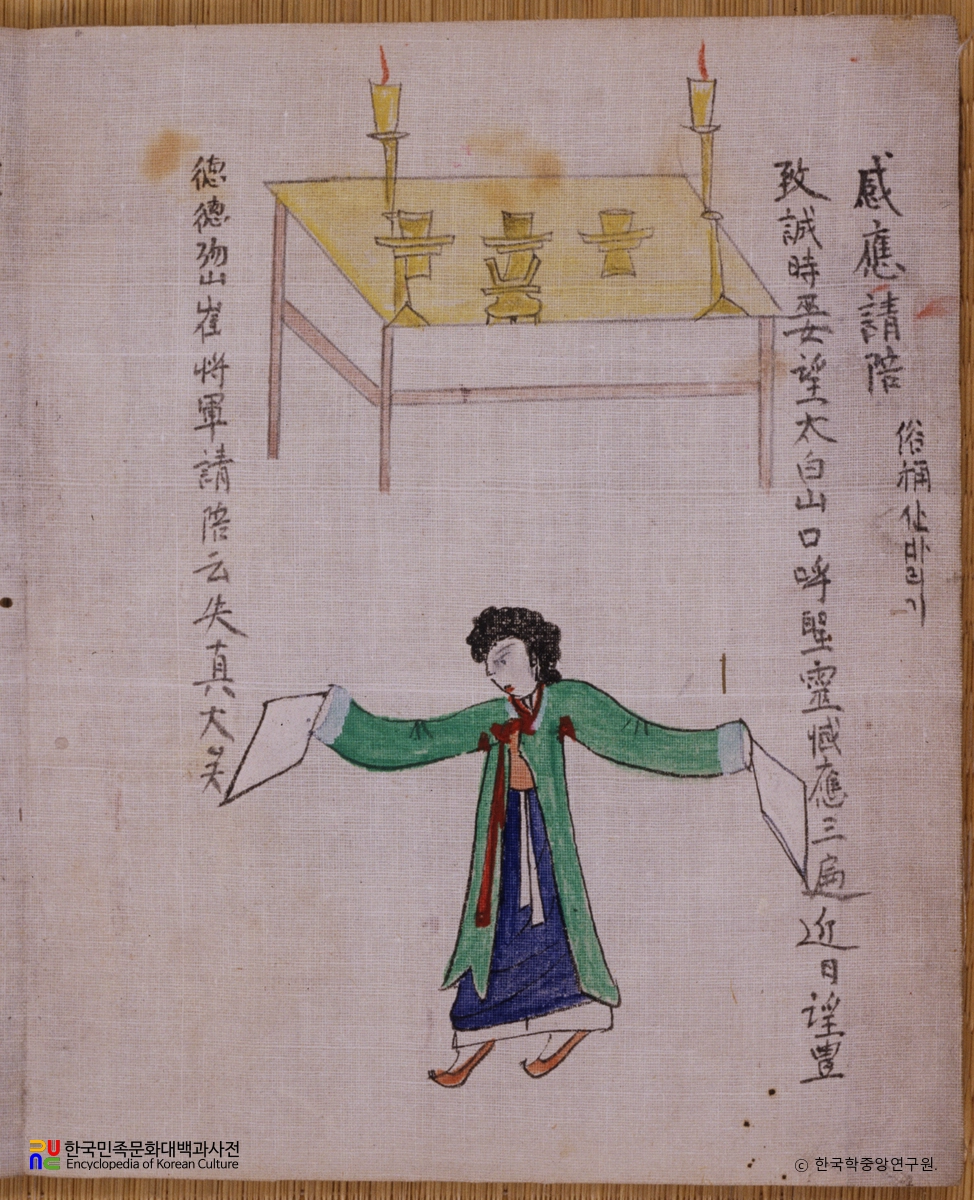 感應請陪
俗稱산바리기
致誠時巫女望太白山口呼聖靈憾應三遍近日望豊
德德物山崔將軍請陪云失真大矣
한국민족문화대백과사전
Encyclopedia of Korean Culture
ⓒ 한국학중앙연구원.